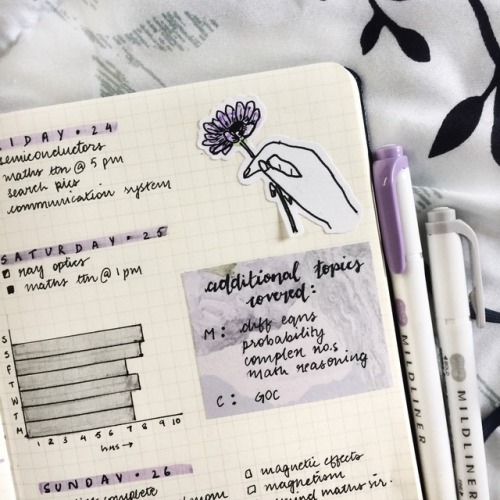 IDAY • 24
semiconductors
maths ttn @ 5 pm
search pics
communication system
SATURDAY • 25
ray optics
maths ttn @ 1 pm
additional topics
covered:
M: diff eqns
probability
complex no.s
math reasoning
C: GOC
S
S
F
T
W
T
M
1 2 3 4 5 6 7 8 9 10
hrs →
SUNDAY • 26
complete
magnetic effects
magnetism
maths sir.
MILDLINER
MILDLINER